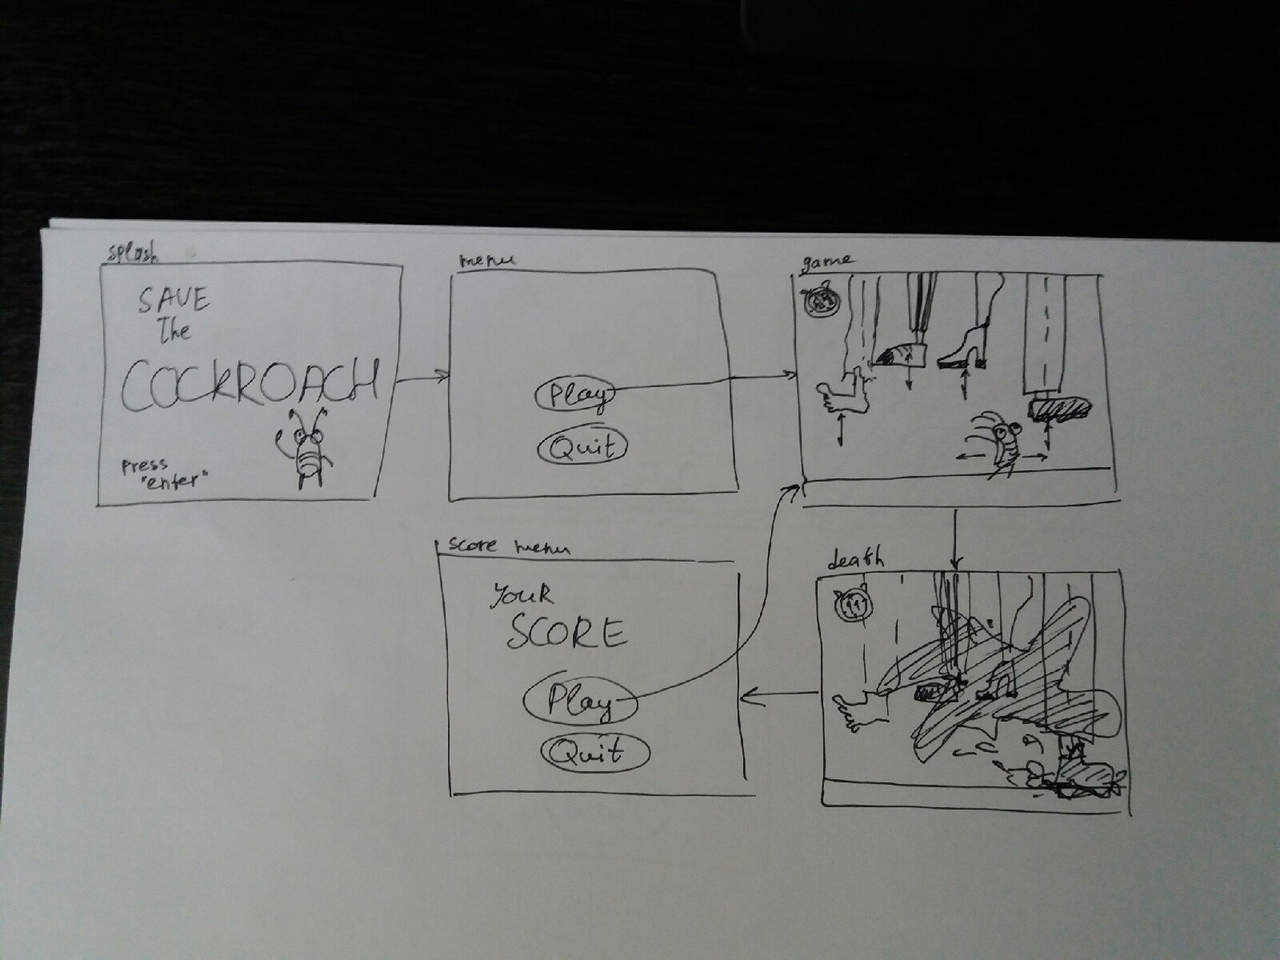 splash
SAVE
the
COCKROACH
press
"enter"
menu
Play
Quit
game
death
score menu
YOUR
SCORE
Play
Quit